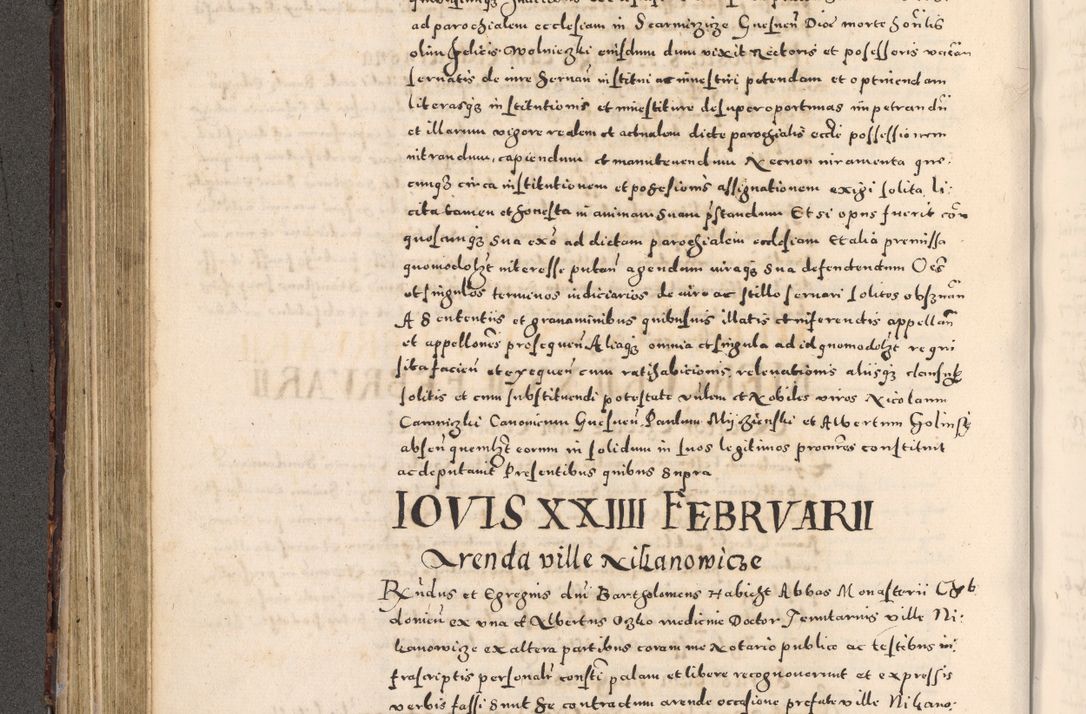 ad parochialem ecclesiam in Scarmirzicze Gnesneñ Dioc morte honˡlis
olim Felicis Wolniczki eiusdem dum vixit Rectoris et possessoris vacañ
servatis de iure servañ institui ac investiri petendam et optinendam
literasqz institutionis et investiture desuper oportunas impetrandũ
et illarum vigore realem et actualem dicte parochialis eccłe possessionem
intrandum, capiendum et manutenendum Necnon iuramenta que-
cunqz circa institutionem et possesionis assignationem exigi solita li-
cita tamen et honesta in animam suam pręstandum Et si opus fuerit coñ
quoscunqz sua exõ ad dictam parochialem ecclesiam Et alia premissa
quomodolꝫt interesse putañ agendum iuraqz sua defendendum Oẽs
et singulos terminos iudiciarios de iure ac stillo servari solitos obszvañ
A Sententiis et gravaminibus quibusvis illatis et inferendis appellañ
et appellonẽs prosequeñ Aliaqz omnia et singula ad id quomodolꝫt requi
sita facieñ et exequeñ cum ratihabicionis, relevationis aliisqz clausulẜ
solitis et cum substituendi potestate vńlem et Nobiles viros Nicolaum
Canonicum Gnesneñ Paulum et Albertum
absen quemlꝫt eorum in solidum in suos legitimos procũres constituit
ac deputavit Presentibus quibus Supra
IOVIS XXIIII FEBRVARII
Arenda ville Nikanowicze
Rñdus et Egregius dńi Bartholomeus Habicht Abbas Monasterii
ex una et Albertus Oczko medicine Doctor Tenutarius ville Ni-
kanowicze ex altera partibus coram me Notario publico ac testibus in-
frascriptis personalr constĩ palam et libere recognoverunt et expressis
verbis fassi sunt Se contractum arende occasione prefate ville Nikano-